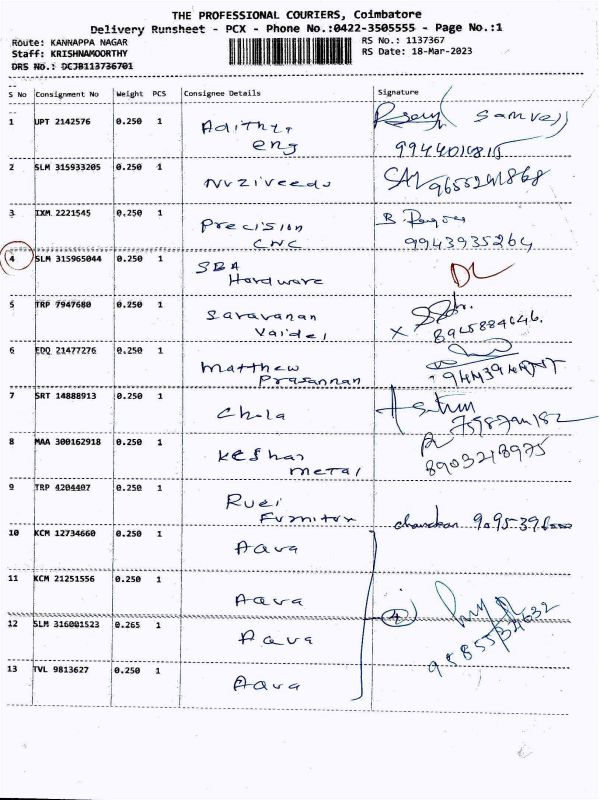 THE PROFESSIONAL COURIERS, Coimbatore
Delivery Runsheet - PCX - Phone No.:0422-3505555 - Page No.:1
Route: KANNAPPA NAGAR
RS No.: 1137367
Staff: KRISHNAMOORTHY
RS Date: 18-Mar-2023
DRS No.: DCJB113736701
S No Consignment No Weight PCS Consignee Details Signature
1 UPT 2142576 0.250 1 Adithya Samvel
eng
2 SLM 315933205 0.250 1 Nuziveedu
3 IXM 2221545 0.250 1 Precision B.
CNC 9943935264
4 SLM 315965044 0.250 1 SBA DL
Hardware
5 TRP 7947680 0.250 1 Saravanan
X 8925884646.
6 EDQ 21477276 0.250 1 Matthew
Prasannan
7 SRT 14888913 0.250 1 Chola
8 MAA 300162918 0.250 1 Keshav
metal 8903213975
9 TRP 4204407 0.250 1
10 KCM 12734660 0.250 1 Aava
11 KCM 21251556 0.250 1 Aava
4
12 SLM 316001523 0.265 1 Aava
13 TVL 9813627 0.250 1 Aava